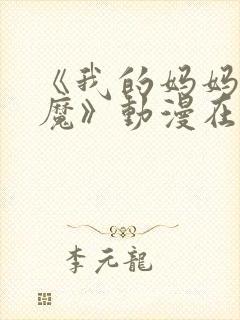 《我的妈妈
魔》動漫在
李元龍